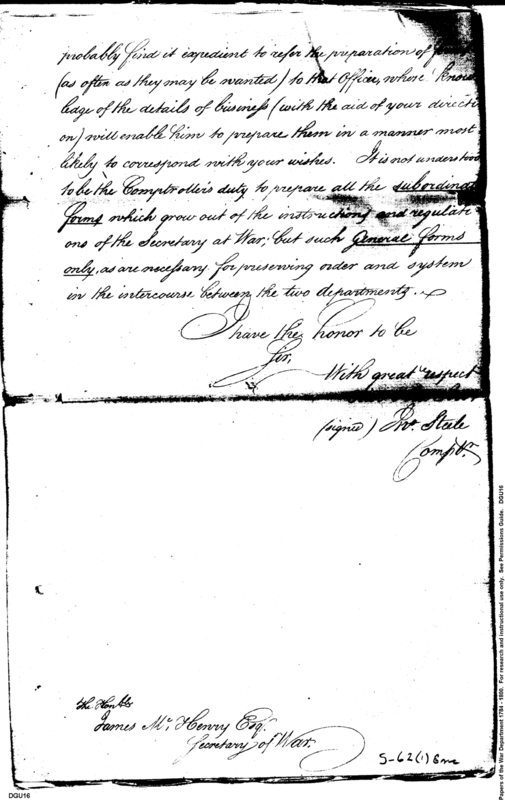 probably find it expedient to refer the preparation of forms
(as often as they may be wanted) to that Officer, whose know
ledge of the details of business (with the aid of your directi
on) will enable him to prepare them in a manner most
likely to correspond with your wishes. It is not understood
to be the Comptroller's duty to prepare all the subordinate
forms which grow out of the instructions and regulati
ons of the Secretary at War; but such General forms
only, as are necessary for preserving order and system
in the intercourse between the two departments.
I have the honor to be
Sir,
With great respect
(signed) Jno. Steele
Comptr.
the Honble
James Mc. Henry Esqr.
Secretary of War.
S-62(1)
DGU16
Papers of the War Department 1784 - 1800. For research and instructional use only. See Permissions Guide. DGU16